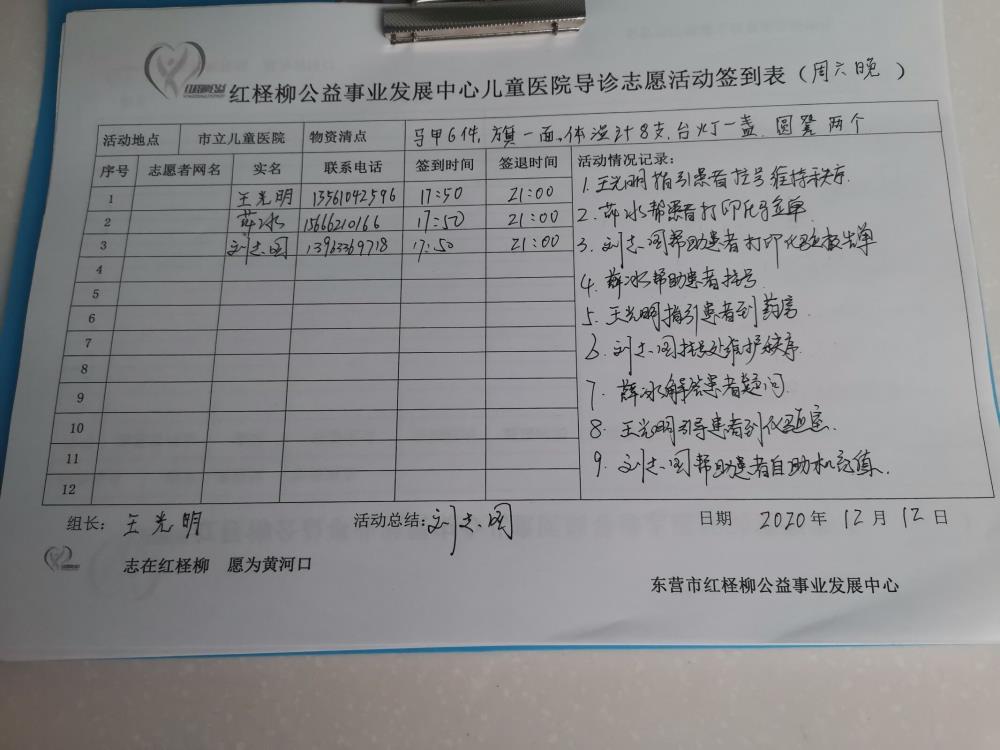 红柽柳公益事业发展中心儿童医院导诊志愿活动签到表（周六晚）
活动地点 市立儿童医院 物资清点 马甲6件，旗一面，体温计8支，台灯一盏，圆凳两个
序号 志愿者网名 实名 联系电话 签到时间 签退时间 活动情况记录：
1 王光明 13561042596 17:50 21:00
2 薛冰 15666210166 17:50 21:00
3 刘志国 13963369718 17:50 21:00
4
5
6
7
8
9
10
11
12
1. 王光明指引患者挂号维持秩序.
2. 薛冰帮患者打印化验单
3. 刘志国帮助患者打印化验报告单
4. 薛冰帮助患者挂号
5. 王光明指引患者到药房
6. 刘志国挂号处维护秩序
7. 薛冰解答患者疑问
8. 王光明引导患者到化验室.
9. 刘志国帮助患者自助机充值.
组长：王光明 活动总结：刘志国 日期 2020年12月12日
志在红柽柳 愿为黄河口
东营市红柽柳公益事业发展中心